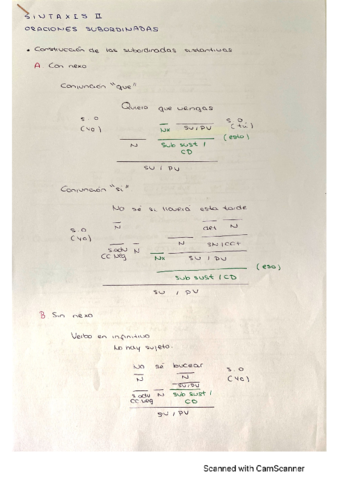 SINTAXIS II
ORACIONES SUBORDINADAS
• Construcción de las subordinadas sustantivas
A Con nexo
Conjunción "que"
Quiero que vengas
S.O S.O
(yo) Nx SV/PV (tú)
N Sub sust / (eso)
CD
SV / PV
Conjunción "si"
No sé si lloverá esta tarde
S.O N det N
(yo) N SN/CCT
Sadv N Nx SV / PV
CC Neg (eso)
Sub sust / CD
SV / PV
B Sin nexo
Verbo en infinitivo
No hay sujeto
No sé bucear S.O
N N (yo)
SV/PV
Sadv N Sub sust /
CC Neg CD
SV / PV
Scanned with CamScanner